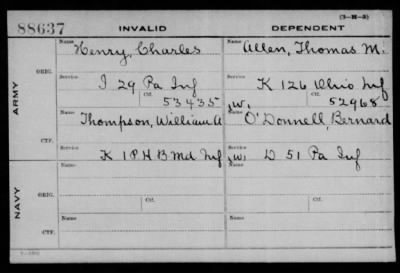 (3-H-3)
88637 INVALID DEPENDENT
Name Name
Henry, Charles Allen, Thomas M.
ORIG. Service Service
I 29 Pa Inf K 126 Ohio Inf
Ctf. Ctf.
53435 52968
ARMY
Name Name
Thompson, William A ,W, O'Donnell, Bernard
CTF. Service Service
K 1 P H B Md Inf ,W, D 51 Pa Inf
Name Name
ORIG. Service Ctf. Service Ctf.
NAVY
Name Name
CTF. Service Service